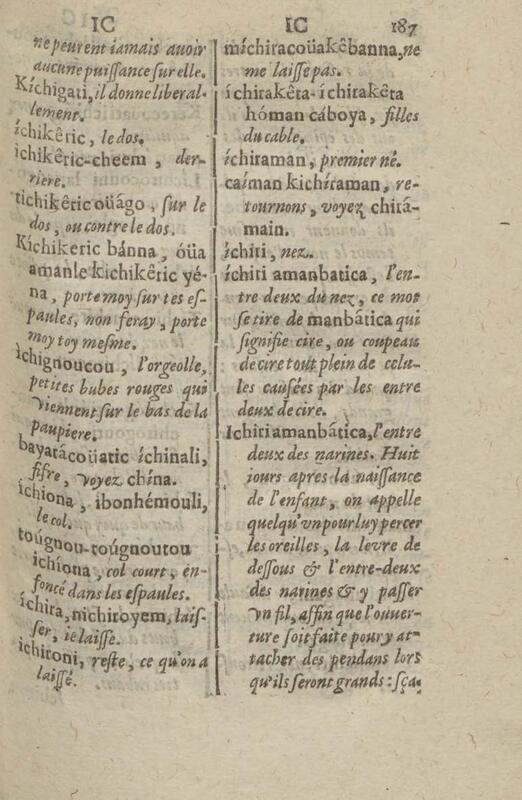 IC
IC 187
ne peuvent iamais auoir
aucune puissance sur elle.
Kíchigati, il donne liberal-
lement.
íchikêric, le dos.
ichikêric-cheem, der-
riere.
tichikêric oüágo, sur le
dos, ou contre le dos.
Kíchikeric bánna, óüa
amanle kichikêric yé-
na, porte moy sur tes es-
paules, non feray, porte
moy toy mesme.
íchignoucou, l'orgeolle,
petites bubes rouges qui
viennent sur le bas de la
paupiere.
bayatácoüatic íchinali,
fifre, voyez chína.
íchiona, ibonhémouli,
le col.
toúgnou-toúgnoutou
ichíona, col court, en-
foncé dans les espaules.
íchira, nichiroyem, lais-
ser, ie laisse.
ichironi, reste, ce qu'on a
laissé.
míchiracoüakêbanna, ne
me laisse pas.
íchirakêta-íchirakêta
hóman cáboya, filles
du cable.
íchiraman, premier né.
caíman kichíraman, re-
tournons, voyez chirá-
main.
íchiri, nez.
íchiri amanbatica, l'en-
tre deux du nez, ce mot
se tire de manbática qui
signifie cire, ou coupeau
de cire tout plein de cclu-
les causées par les entre
deux de cire.
Ichiri amanbática, l'entre
deux des narines. Huit
jours apres la naissance
de l'enfant, on appelle
quelqu'vn pour luy percer
les oreilles, la levre de
dessous & l'entre-deux
des narines & y passer
vn fil, affin que l'ouuer-
ture soit faite pour y at-
tacher des pendans lors
qu'ils seront grands : sça-